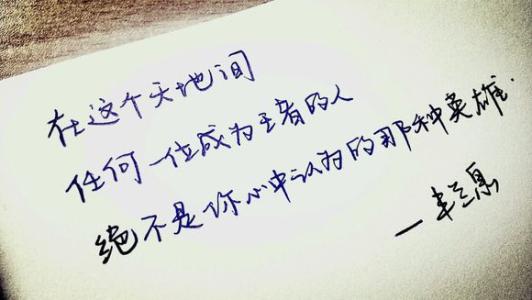 在这个天地间
任何一位成为王者的人
绝不是你心中认为的那种英雄.